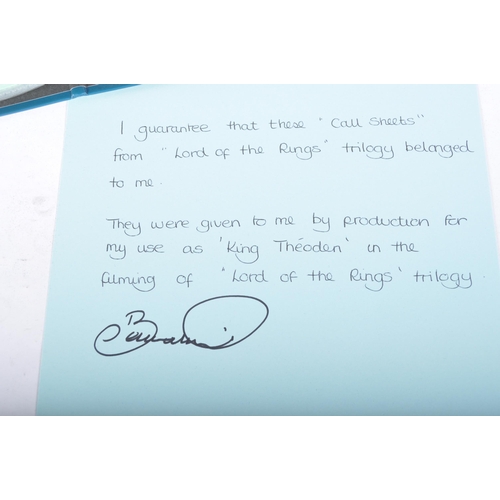 I guarantee that these "Call Sheets"
from "Lord of the Rings" trilogy belonged
to me.
They were given to me by production for
my use as 'King Théoden' in the
filming of 'Lord of the Rings' trilogy